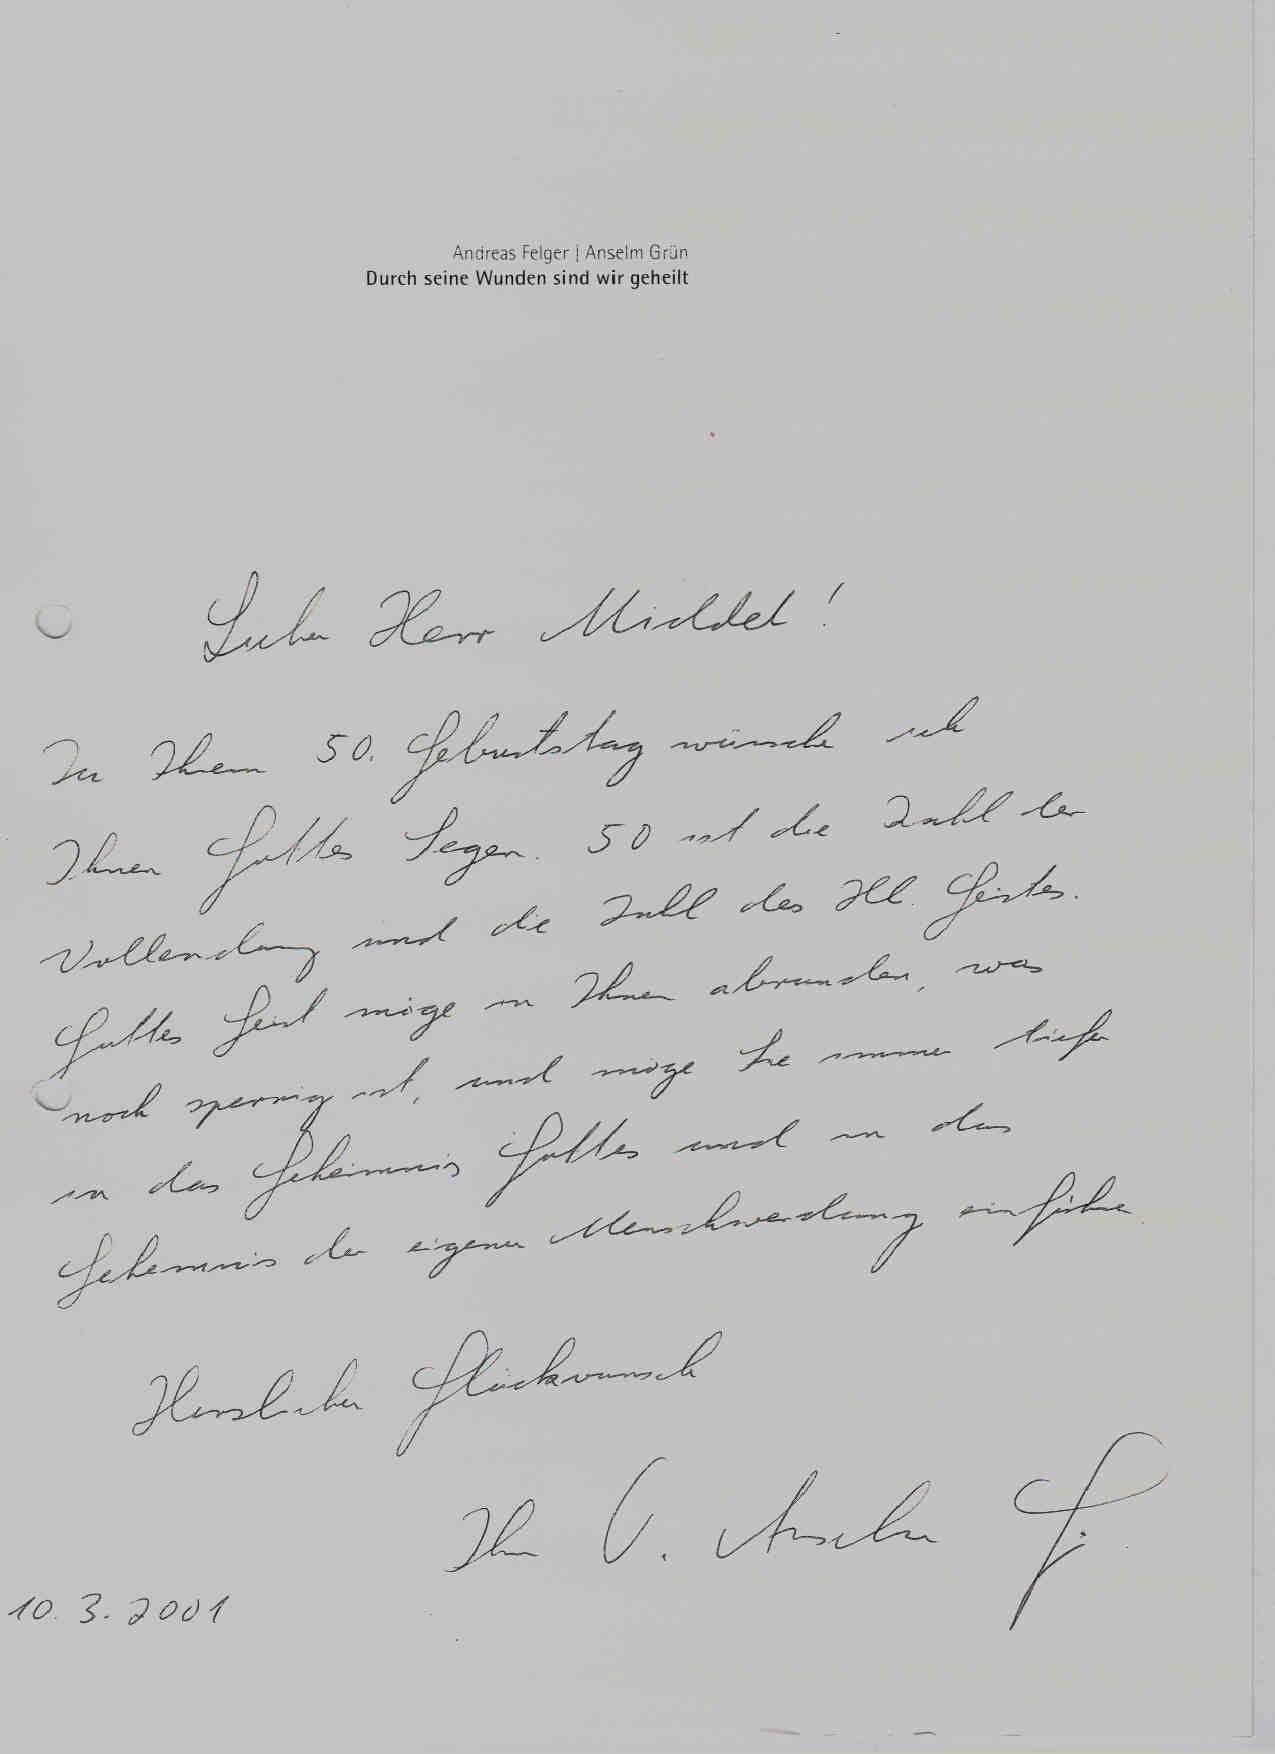 Andreas Felger | Anselm Grün
Durch seine Wunden sind wir geheilt
Lieber Herr Middel!
Zu Ihrem 50. Geburtstag wünsche ich
Ihnen Gottes Segen. 50 ist die Zahl der
Vollendung und die Zahl des Hl. Geistes.
Gottes Geist möge in Ihnen abrunden, was
noch sperrig ist, und möge Sie immer tiefer
in das Geheimnis Gottes und in das
Geheimnis der eigenen Menschwerdung einführe
Herzlichen Glückwunsch
Ihr P. Anselm G.
10.3.2001